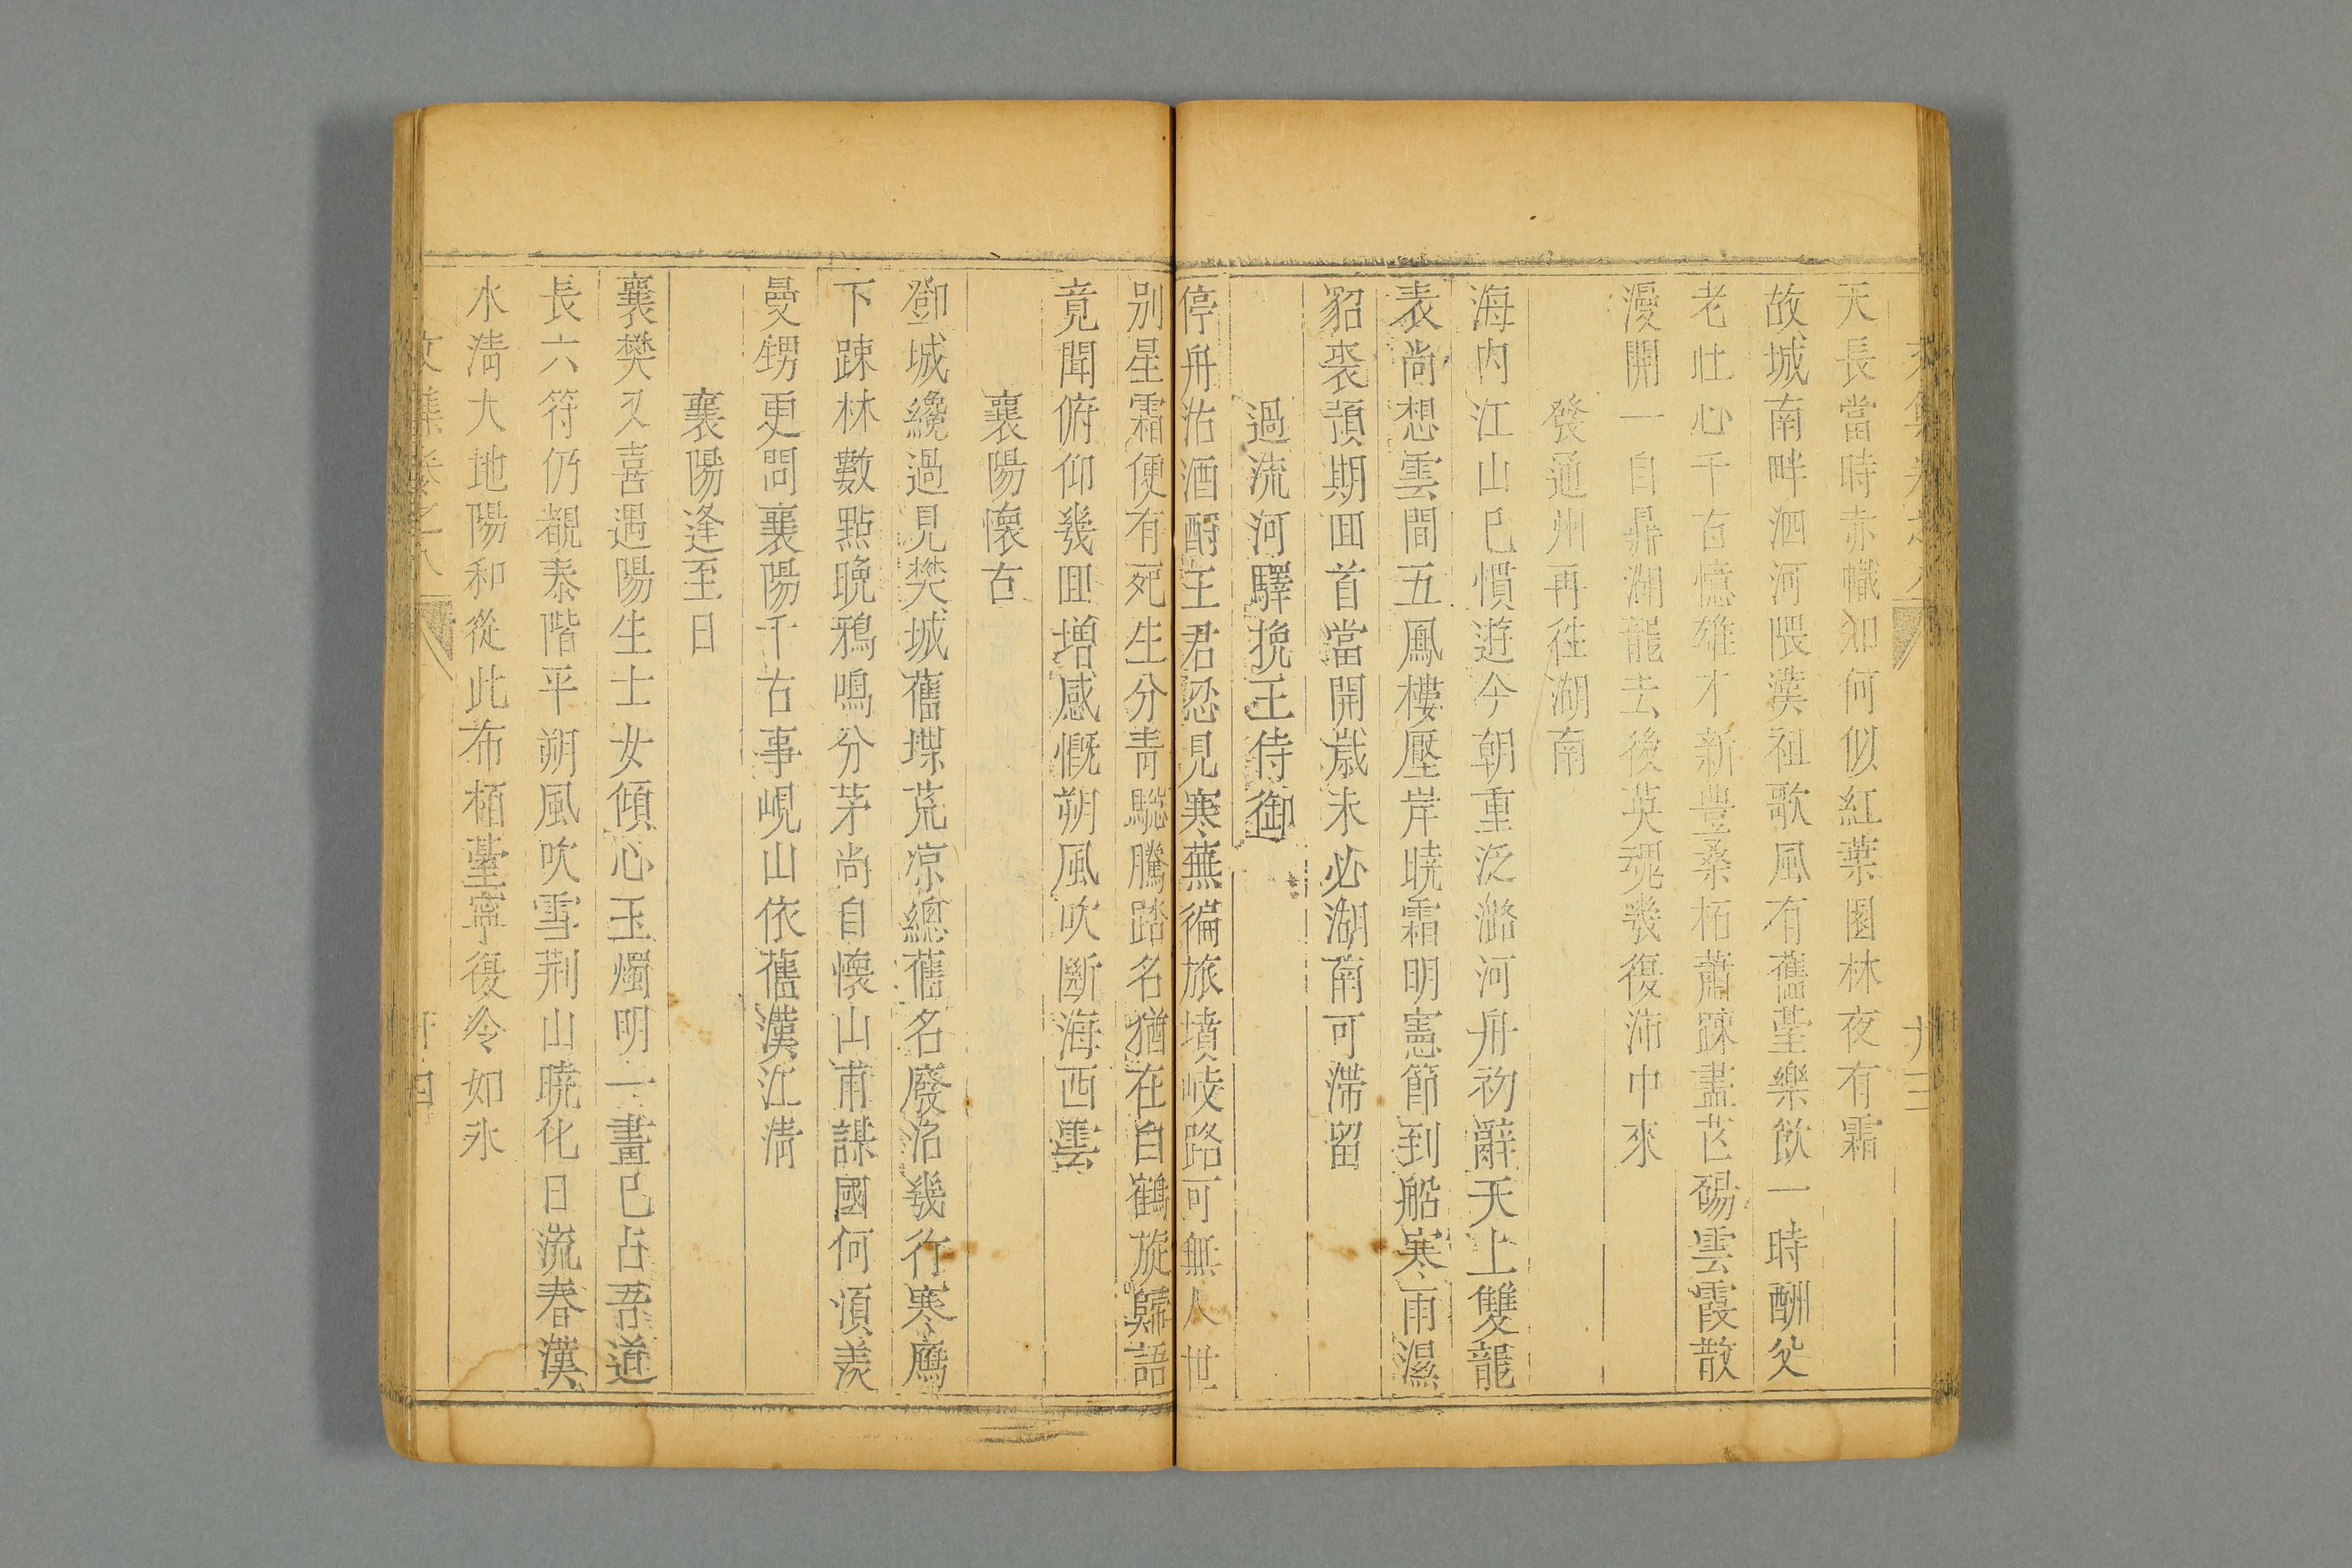 天長當時赤幟如何似紅葉園林夜有霜
故城南畔泗河隈漢祖歌風有舊臺樂飲一時酬父
老壯心千百憶雄才新豐桑柘蕭踈盡芒碭雲霞散
漫開一自鼎湖龍去後英魂幾復沛中來
發通州再徃湖南
海内江山已慣遊今朝重泛潞河舟初辭天上雙龍
表尚想雲間五鳳樓壓岸曉霜明憲節到船寒雨濕
貂裘預期囬首當開歳未必湖南可滯留
過流河驛挽王侍御
停舟沽酒酹王君忍見寒蕪徧旅墳岐路可無人世
别星霜便有死生分青驄騰踏名猶在白鶴旋歸語
竟聞俯仰幾囬增感慨朔風吹斷海西雲
襄陽懷古
鄧城纔過見樊城舊堞荒凉總舊名廢沼幾行寒鴈
下踈林數點晚鴉鳴分茅尚自懷山甫謀國何須羨
曼甥更問襄陽千古事峴山依舊漢江清
襄陽逢至日
襄樊又喜遇陽生士女傾心玉燭明一畫已占吾道
長六符仍覩泰階平朔風吹雪荆山曉化日流春漢
水清大地陽和從此布栢臺寧復冷如氷
文集卷之八